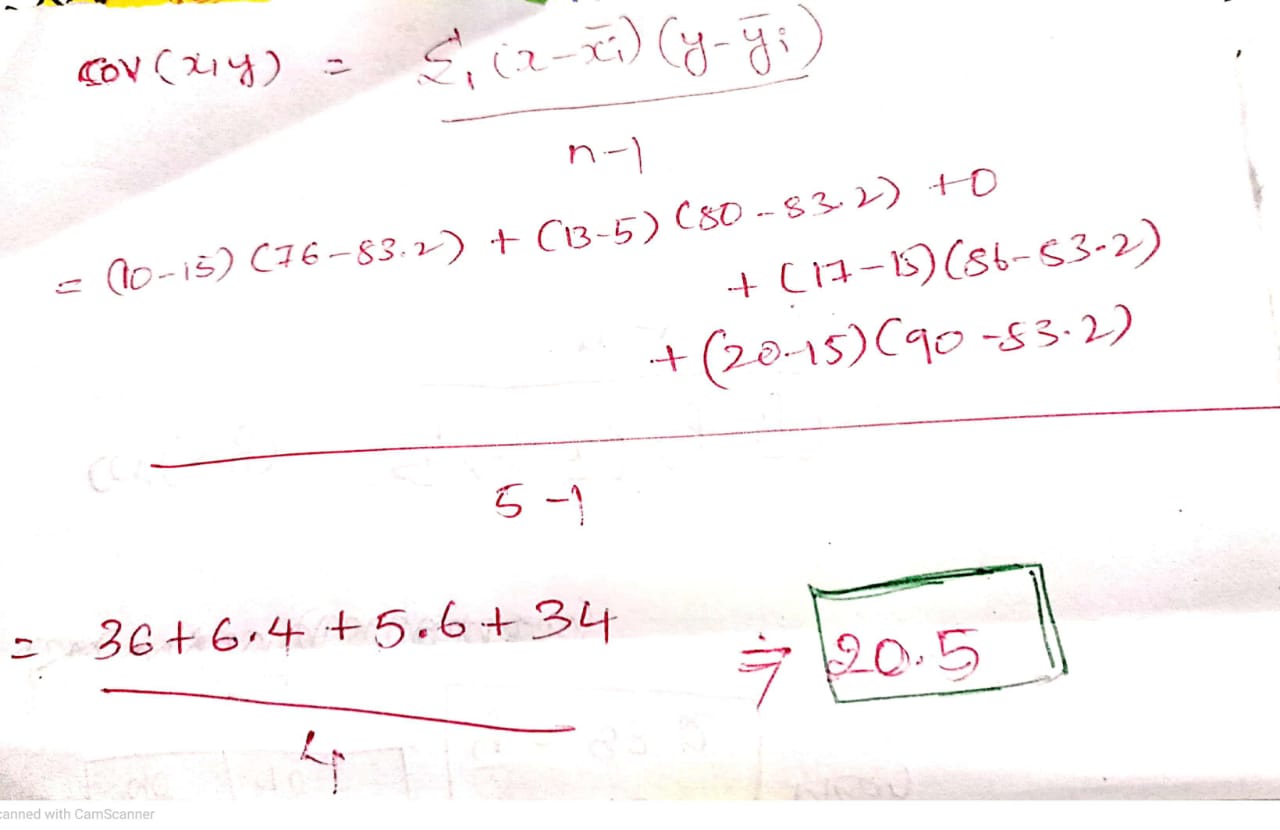 COV (x,y) = Σ, (x-x̄i) (y-ȳi)
n-1
= (10-15) (76-83.2) + (13-5) (80-83.2) +0
+ (17-15) (86-83.2)
+ (20-15) (90-83.2)
5-1
= 36+6.4+5.6+34
4
⇒ 20.5
canned with CamScanner